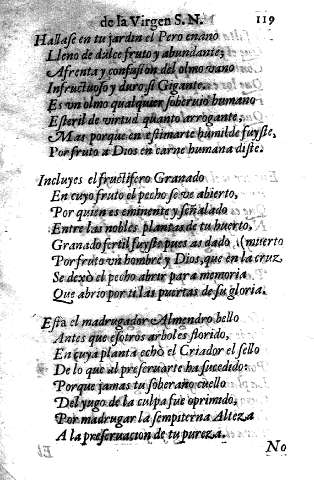 de la Virgen S. N. 119
Hallase en tu jardin el Pero enano
Lleno de dulce fruto y abundante;
Afrenta y confusion del olmo vano
Infructuoso y duro, si Gigante.
Es vn olmo qualquier soberuio humano
Esteril de virtud quanto arrogante;
Mas porque en estimarte humilde fuyste,
Por fruto a Dios en carne humana diste.
Incluyes el fructifero Granado
En cuyo fruto el pecho se ve abierto,
Por quien es eminente y señalado
Entre las nobles plantas de tu huerto,
Granado fertil fuyste pues as dado (muerto
Por fruto vn hombre y Dios, que en la cruz
Se dexò el pecho abrir para memoria
Que abrio por ti las puertas de su gloria.
Esta el madrugador Almendro bello
Antes que essotros arboles florido,
En cuya planta echò el Criador el sello
De lo que al preseruarte ha sucedido:
Porque jamas tu soberano cuello
Del yugo de la culpa fue oprimido,
Por madrugar la sempiterna Alteza
A la preseruacion de tu pureza.
No